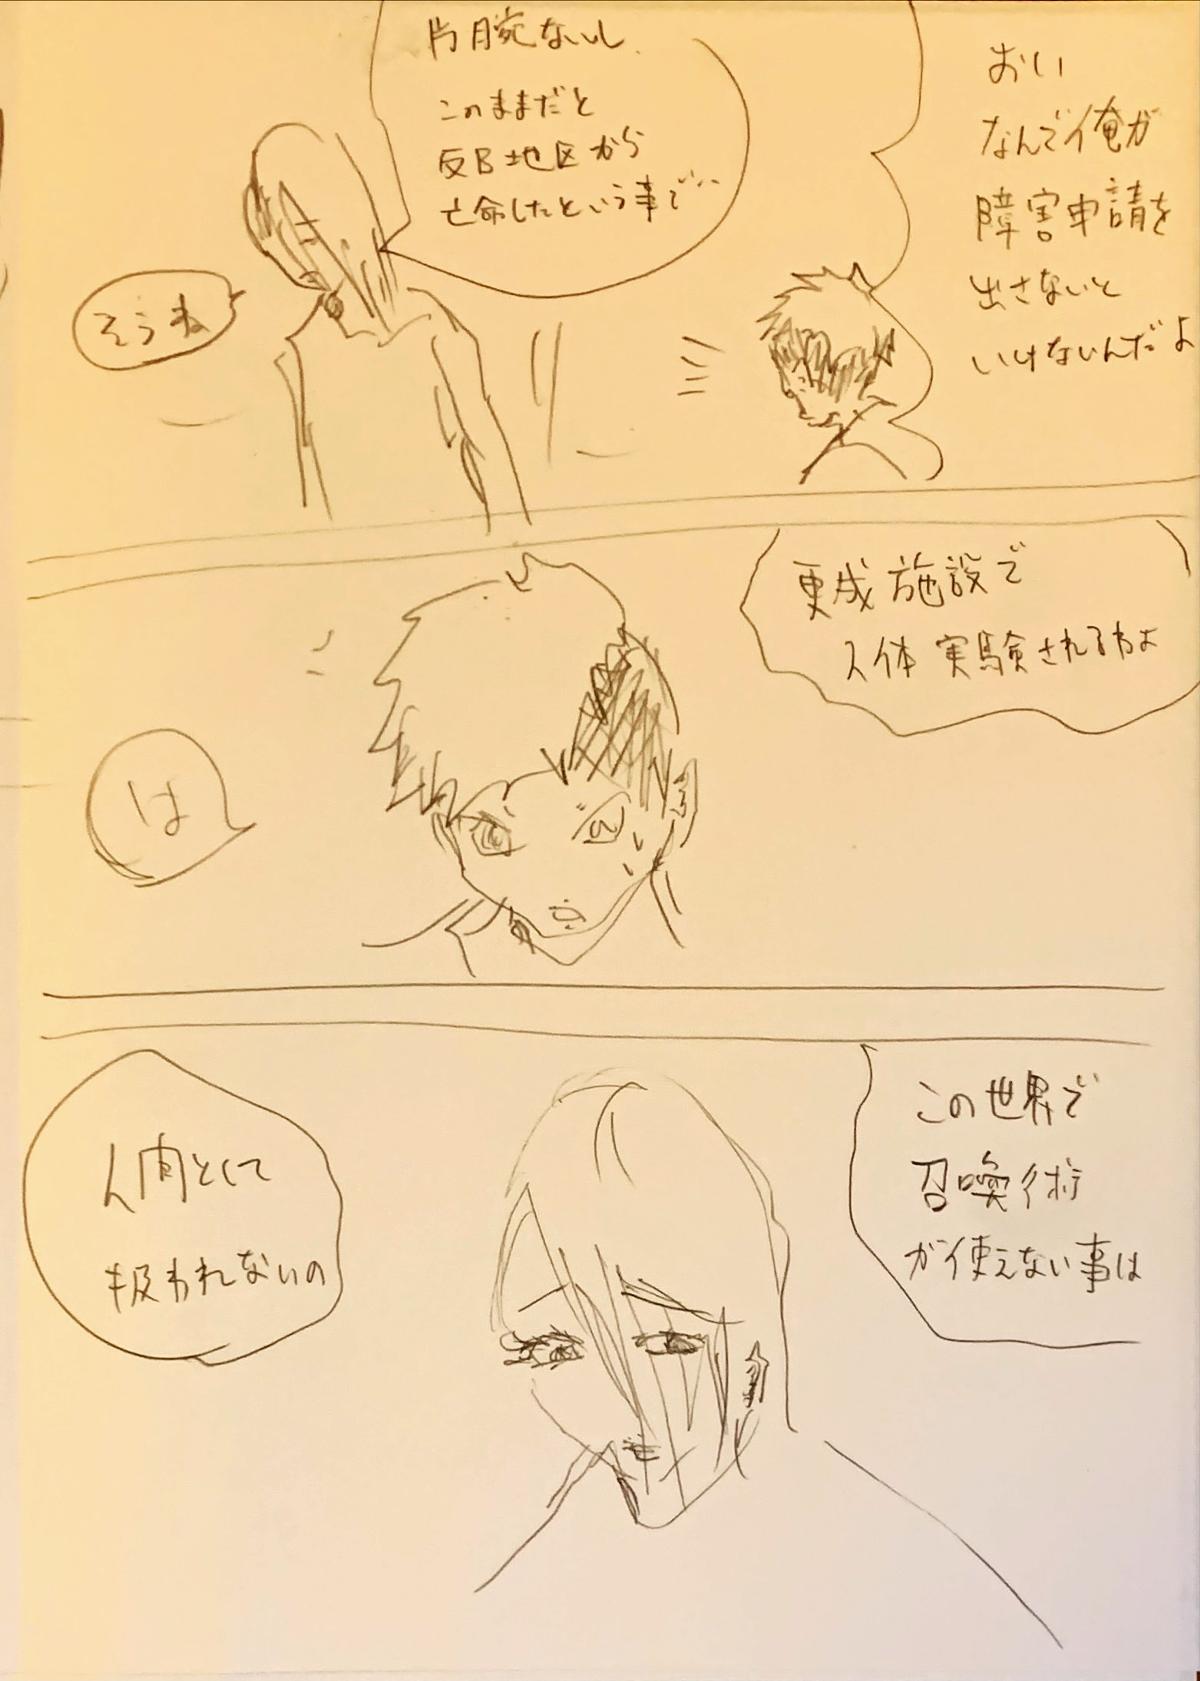 おい
なんで俺が
障害申請を
出さないと
いけないんだよ
片腕ないし
このままだと
反日地区から
亡命したという事で…
そうね
更成施設で
人体実験されるわよ
は
この世界で
召喚術
が使えない事は
人肉として
扱われないの